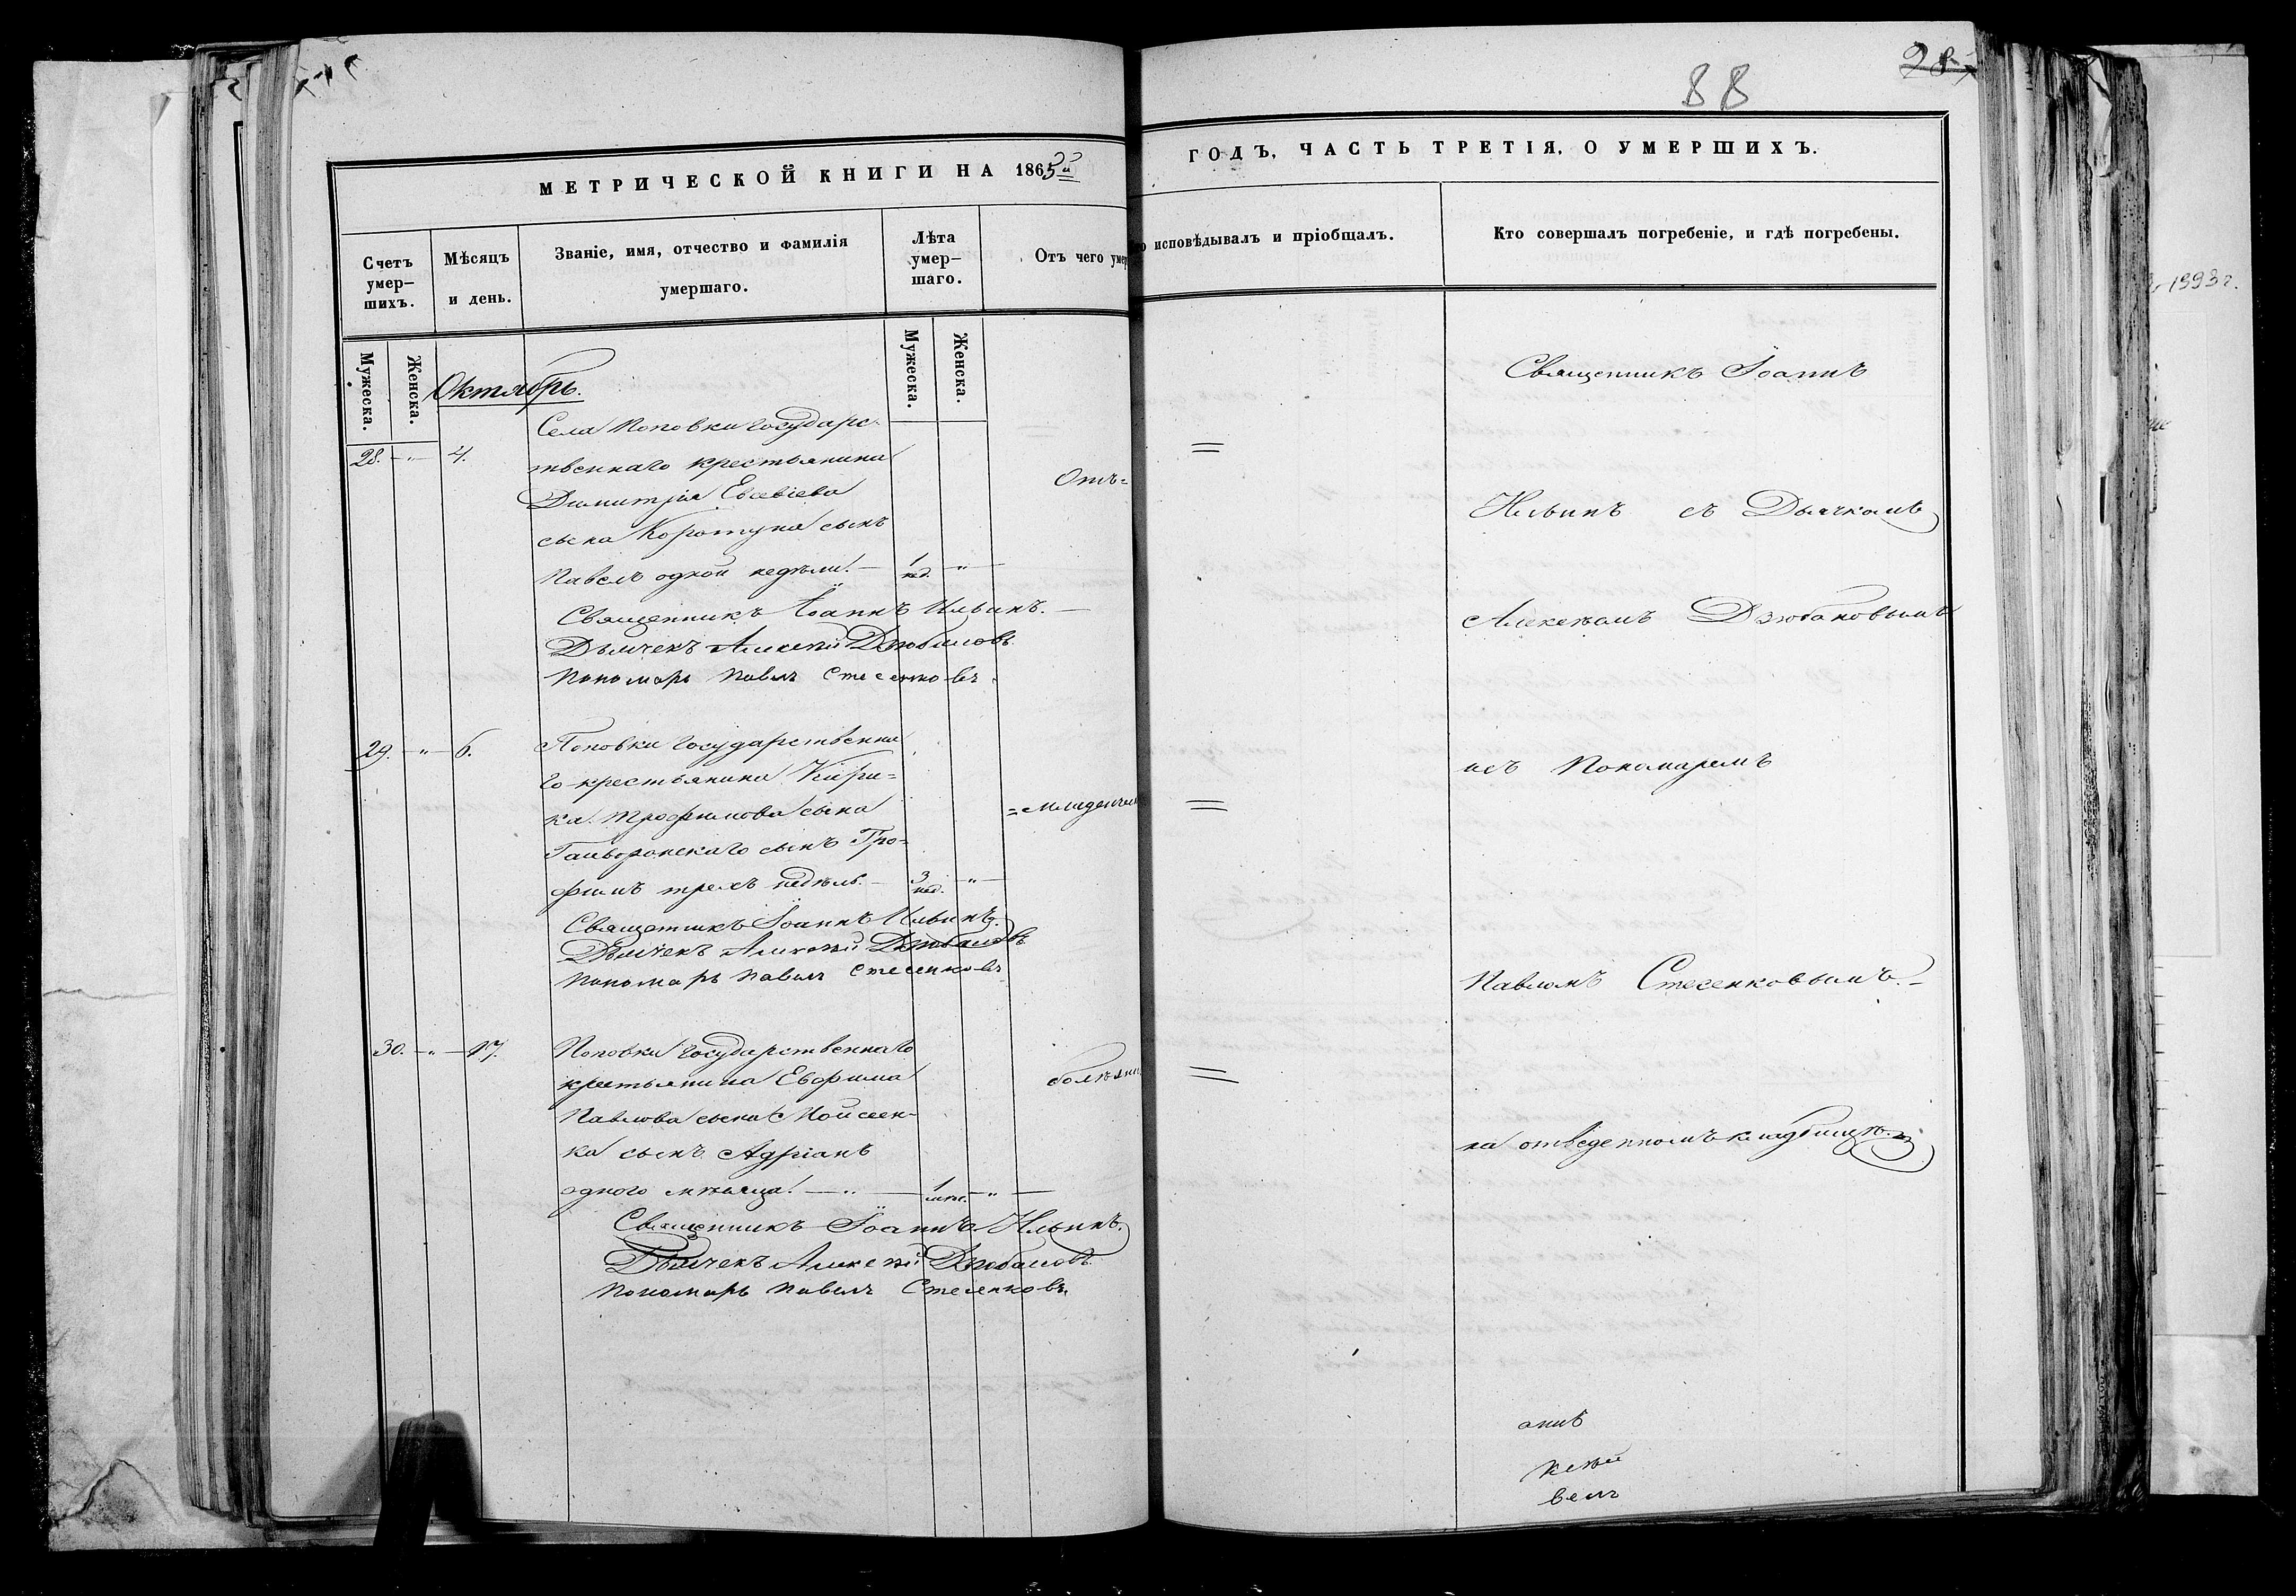 88
МЕТРИЧЕСКОЙ КНИГИ НА 1865й
ГОДЪ, ЧАСТЬ ТРЕТІЯ, О УМЕРШИХЪ.
Счетъ умер-
шихъ.
Мѣсяцъ
и день.
Званіе, имя, отчество и фамилія
умершаго.
Лѣта
умер-
шаго.
Отъ чего умер
исповѣдывалъ и пріобщалъ.
Кто совершалъ погребеніе, и гдѣ погребены.
Мужеска.
Женска.
Мужеска.
Женска.
Октябрь.
Села Поповки государс-
28. — " — 4. твеннаго крестьянина
Димитрія Евсевіева
сына Коротуна сынъ
Павелъ одной недѣли. — 1 нед. — " —
Священникъ Іоаннъ Ильинъ. —
Дьячекъ Алексѣй Дзюбановъ.
Пономарь Павелъ Стесенковъ.
29. — " — 6. Поповки государственна
го крестьянина Кири=
ка Трофимова сына
Гайворонскаго сынъ Тро=
фимъ трехъ недѣль. — 3 нед. — " —
Священникъ Іоаннъ Ильинъ.
Дьячекъ Алексѣй Дзюбановъ
Пономарь Павелъ Стесенковъ
30. — " — 17. Поповки государственнаго
крестьянина Евфима
Павлова сына Мойсеен-
ка сынъ Адріанъ
одного мѣсяца. — " — 1 мѣс. — " —
Священникъ Іоаннъ Ильинъ.
Дьячекъ Алексѣй Дзюбановъ.
Пономарь Павелъ Стесенковъ
Отъ=
=младенческ
болѣзни
Священникъ Іоаннъ
Ильинъ съ Дьячкомъ
Алексѣемъ Дзюбановымъ
и съ Пономаремъ
Павломъ Стесенковымъ. —
на отведенномъ кладбищѣ.
аннъ
ксѣй
велъ
1993г.